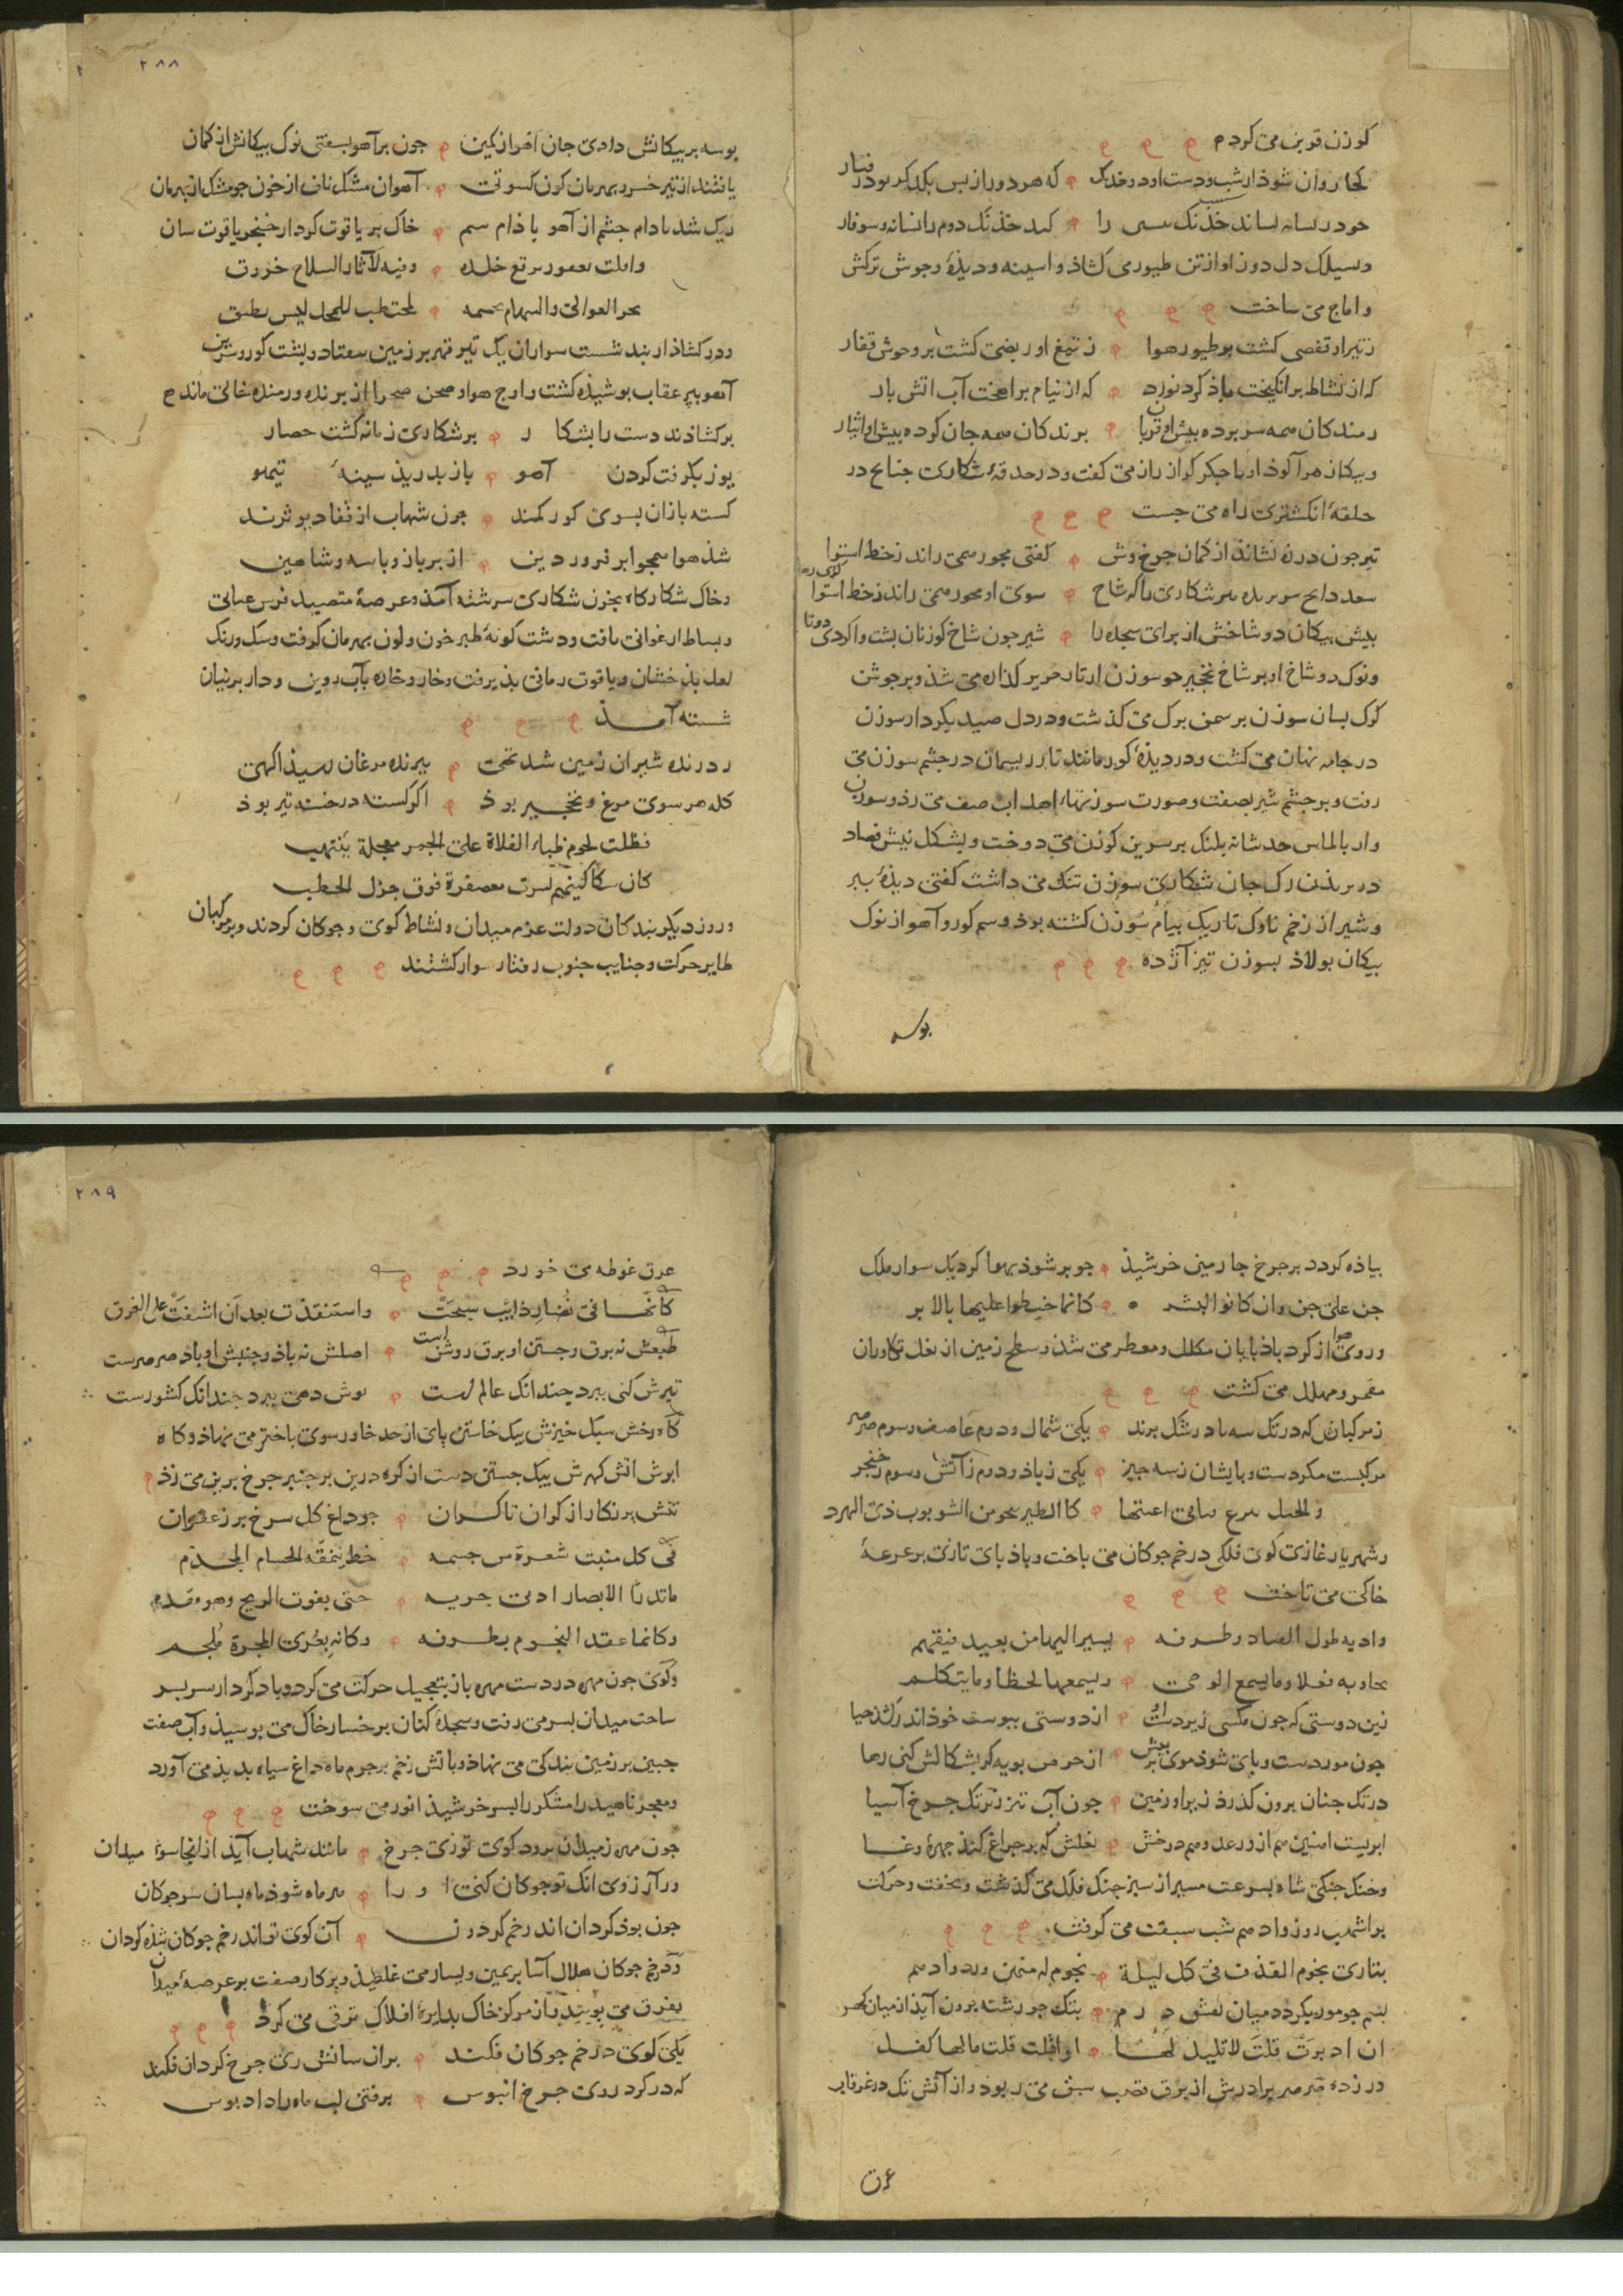 کوزن قوین می کردم
کجا روان شوذ از شب ودست او دو خدنک که هر دو را ز بس یکدیکر بود رفتار
خدنک را کند خذنک دوم را نشانه وسوفار
دل دوز او از تن طیور می کشاذ و از سینه و دیذۀ وحوش ترکش
و اماج می ساخت
ز تیر او تفصی کشت بر طیور هوا ز تیغ او ربضی کشت بر وحوش قفار
که از نشاط برانکیخت باذ کرد نورد که از نیام براهخت آب اتش بار
رمندکان همه سر برده بیش او قربان برندکان همه جان کرده بیش او ایثار
وبیکان زهرآکوذ او با جکر کوران راز می کفت ودر حدقۀ شکاری جناح در
حلقۀ انکشتری راه می جست
تیر جون درزه نشاند از کمان جرخ وش کفتی محور همی راند ز خط استوا
سوی او محور همی راند ز خط استوا
بیش بیکان دو شاخش از برای سجده را شیر جون شاخ کوزنان بشت را کردی دوتا
ونوک دو شاخ او بر شاخ نخجیر جو سوزن از تار حریر کذاره می شذ وبر جوشن
کرک بسان سوزن بر سمن برک می کذشت ودر دل صید بکردار سوزن
در جامه نهان می کشت ودر دیذۀ کور مانند تار ریسمان در جشم سوزن می
رفت وبر جشم شیر بصفت وصورت سوزنهاء اهداب صف می زذ وسوزن
وار بالماس حد شانه بلنک بر سرین کوزن می دوخت وبشکل نیش فصاد
در بریذن رک جان شکاری سوزن تنک می داشت کفتی دیذۀ ببر
وشیر از زخم ناوک تاریک بیام سوزن کشته بوذ وسم کور وآهو از نوک
بیکان بولاذ بسوزن تیز آژده
بوسه
٢٨٨
بوسه بر بیکانش دادی جان آهو از کمین جون بر آهو بسفتی نوک بیکانش از کمان
یافتند از تیر خسرو بهرمان کون کسوتی آهوان مشک ناف از خون جو مشک از بهرمان
ریک شد بادام جشم از آهو باذام سم خاک بر یاقوت کود از خنجر یاقوت سان
وفیه لآثار السلاح خروق
بحر العوالی والسهام بجسمه لمحتطب للمحل لیس یطیق
ودر کشاذ از بند شست سواران یک تیر قهر بر زمین هفتاد و بشت کور وسرین
آهو ببر عقاب بوشیذه کشت واوج هوا وصحن صحرا از برنده ورمنده خالی ماند
برکشاذند دست را بشکار بر شکاری زمانه کشت حصار
یوز بکرفت کردن آهو باز بدریذ سینۀ تیهو
کسته بازان بسوی کور کمند جون شهاب از قفاء دیو نژند
شذ هوا همجو ابر فروردین از بر باز وباسه وشاهین
وخاک شکارکاه بخون شکاری سرشته آمذ وعرصۀ متصید فرش عبابی
وبساط ارغوانی یافت ودشت کونۀ طبرخون ولون بهرمان کرفت وسنک ورنک
لعل بذخشان ویاقوت رمانی بذیرفت وخار وخاره بآب روین ودار برنیان
شسته آمذ
ز درنده شیران زمین شد تهی ببرنده مرغان رسیذ آکهی
کله هر سوی مرغ ونخجیر بوذ اکر کسته در خسته تیر بوذ
فظلت لحوم ظباء الفلاة علی الجمر معجلة ینتهب
کان سکاکینهم نشرت معصفرة فوق جزل الحطب
وروز دیکر بندکان دولت عزم میدان ونشاط کوی وجوکان کردند وبر مرکبان
طایر حرکت وجنایب جنوب رفتار سوار کشتند
بیاذه کردد بر جرخ جارمین خرشیذ جو بر شوذ بهوا کرد یک سوار ملک
جن علی جن وان کانوا البشر کانما خیطوا علیها بالابر
وروی هوا از کرد باذبایان مکلل ومعطر می شذ وسطح زمین از نعل تکاوران
مقمر ومهلل می کشت
ز مرکبان که در تک سه باد رشک برند یکی شمال ودوم عاصف وسوم صرصر
مرکبست مکر دست وبایشان ز سه جیز یکی ز باذ ودوم ز آتش وسوم ز خنجر
کا الطیر ینجو من الشوبوب ذی البرد
وشهریار غازی کوی فلکی در خم جوکان می باخت وباذبای تازی بر عرصۀ
خاکی می تاخت
یسیر الیها من بعید فیفهم
ویسمعها لحظا وما یتکلم
زین دوستی که جون مکسی زیر دست او از دوستی ببوست خوذ اندر کشذ حیا
جون مور دست وبای شوذ موی بر تنش از حرص بویه کر بشکالش کنی رها
در تک جنان برون کذرذ زیر او زمین جون آب تیز زیر تک جرخ آسیا
ابریست امنین هم از رعد وهم درخش نعلش که بر جراغ کنذ جهرۀ وغا
وخنک جنکی شاه بسرعت مسیر از سیر جنک فلک می کذشت وبخفت وحرکت
بر اشهب روز وادهم شب سبقت می کرفت
یباری نجوم القذف فی کل لیلة نجوم له منهن ورد وادهم
بسم جو مور بکردد میان نقش درم بتک جو رشته برون آیذ از میان کهر
ان ادبرت قلت لا تلیل لها او اقبلت قلت ما لها کفل
در زده صرصر برادرش از برق قصب سبق می ربوذ واز آتش تک در غرقاب
عرق
٢٨٩
عرق غوطه می خورد
کانها فی نضار ذائب سبحت واستنقذت بعد ان اشفت علی الغرق
طبعش نه برق وجستن او برق روشن است اصلش نه باذ وجنبش او باذ صرصرست
تیزش کنی ببرد جندانک عالم است نوش دهی ببرد جندانک کشورست
کاه رخش سبک خیزش بیک خاستن بای از حد خاور سوی باختر می نهاذ وکاه
ابرش اتش کهرش بیک جستن دست از کره زرین بر جنبر جرخ برین می زذ
تنش بر نکار از کران تا کران جو داغ کل سرخ بر زعفران
فی کل منبت شعرة من جسمه خط ینمقه الحسام المخذم
ما تدرک الابصار ادنی جریه حتی یفوت الریح وهو مقدم
وکانما عقد النجوم بطرفه وکانه بعری المجرة ملجم
وکوی جون مهره در دست مهره باز بتعجیل حرکت می کرد وباد کردار سر بسر
ساحت میدان بسر می رفت وسجده کنان بر خسار خاک می بوسیذ وآب صفت
جبین بر زمین بندکی می نهاذ وباتش زخم بر جرم ماه داغ سیاه بدیذ می آورد
ومعجر ناهید رامشکر را بسر خرشیذ انور می سوخت
جون مهره ز میدان برود کوی توزی جرخ مانند شهاب آیذ از انجا سوء میدان
ور آرزوی انک تو جوکان کنی او را هر ماه شوذ ماه بسان سر جوکان
جون بوذ کردان اندر خم کردون آن کوی تو اندر خم جوکان شذه کردان
ودر خم جوکان هلال آسا بر یمین ویسار می غلطیذ وبرکار صفت بر عرصۀ میدان
بفرق می بوییذ وباز مرکز خاک بدایرۀ افلاک ترقی می کرد
یکی کوی در خم جوکان فکند بران سانش زی جرخ کردان فکند
که در کرد روی جرخ ابنوس برفتن لب ماه را داد بوس